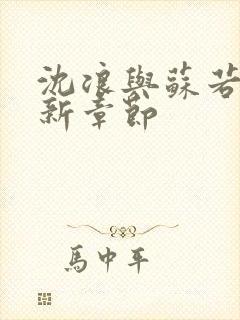 沈浪與蘇若
新章節
馬中平